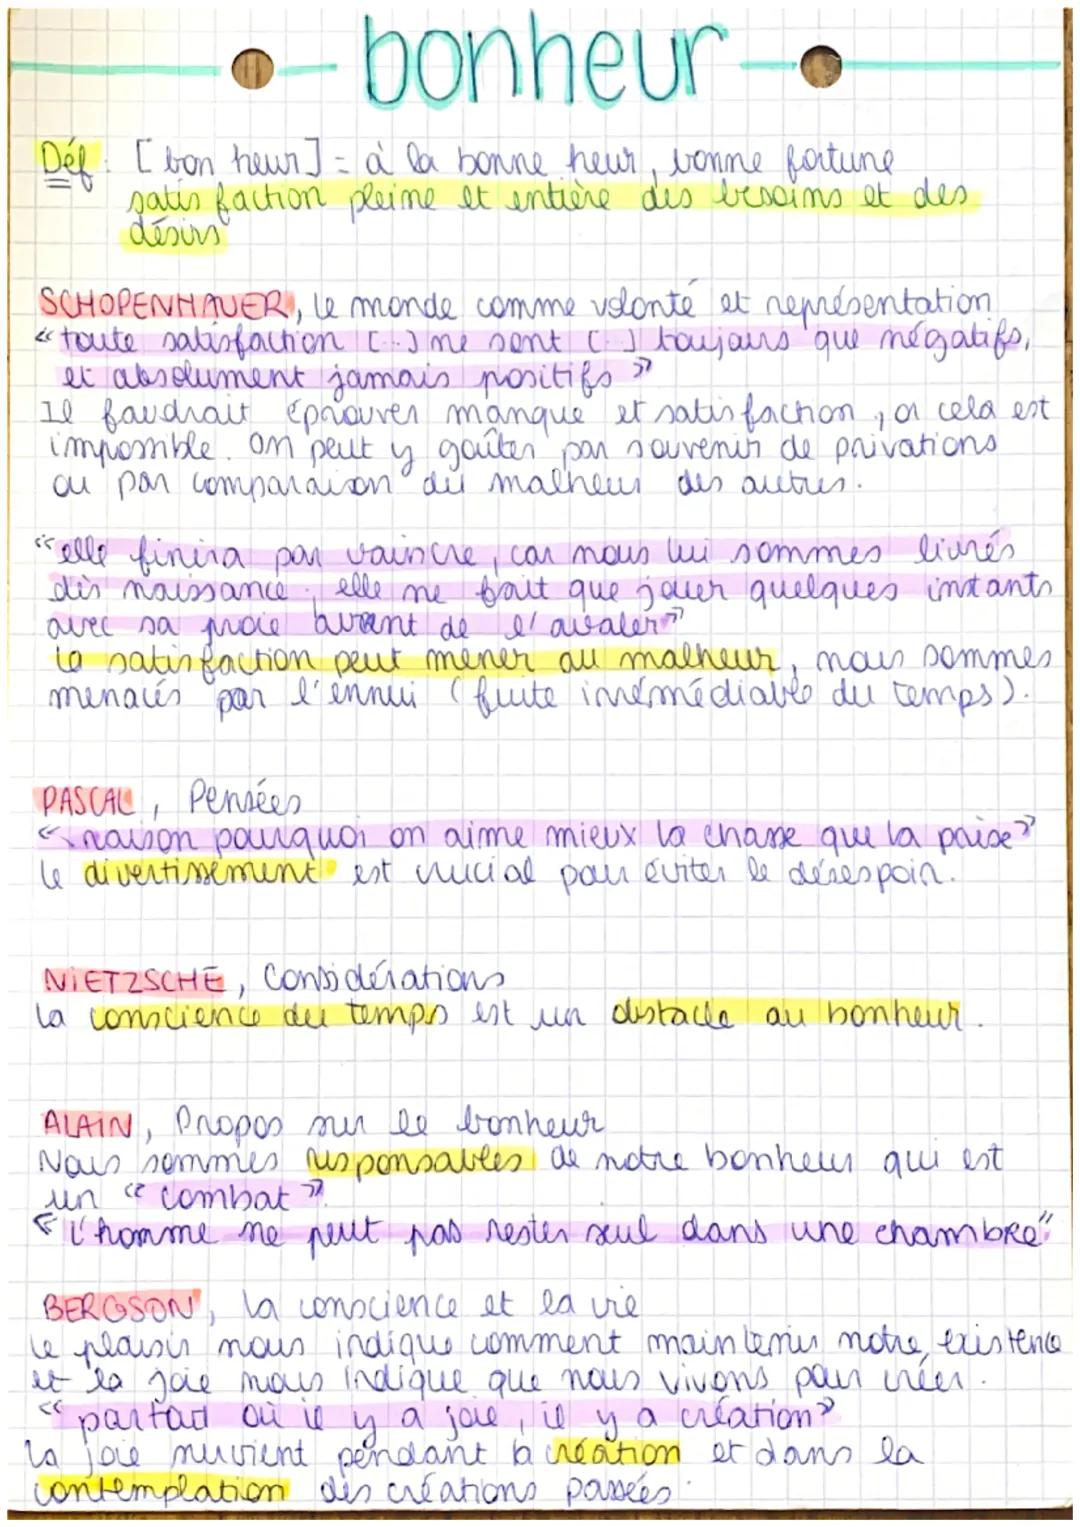 bonheur
Déf : [bon heur] = à la bonne heur, bonne fortune
satisfaction pleine et entière des besoins et des
désirs
SCHOPENHAUER, le monde comme volonté et représentation
« toute satisfaction [...] ne sont [...] toujours que négatifs,
et absolument jamais positifs »
Il faudrait éprouver manque et satisfaction, or cela est
impossible. On peut y goûter par souvenir de privations
ou par comparaison du malheur des autres.
"elle finira par vaincre, car nous lui sommes livrés
dès naissance, elle ne fait que jouer quelques instants
avec sa proie avant de l'avaler"
la satisfaction peut mener au malheur, nous sommes
menacés par l'ennui (fuite irrémédiable du temps).
PASCAL, Pensées
« raison pourquoi on aime mieux la chasse que la prise »
le divertissement est crucial pour éviter le désespoir.
NIETZSCHE, Considérations
la conscience du temps est un obstacle au bonheur.
ALAIN, Propos sur le bonheur
Nous sommes responsables de notre bonheur qui est
un "combat".
"L'homme ne peut pas rester seul dans une chambre"
BERGSON, la conscience et la vie
le plaisir nous indique comment maintenir notre existence
et la joie nous indique que nous vivons pour créer.
« partout où il y a joie, il y a création »
la joie survient pendant la création et dans la
contemplation des créations passées.